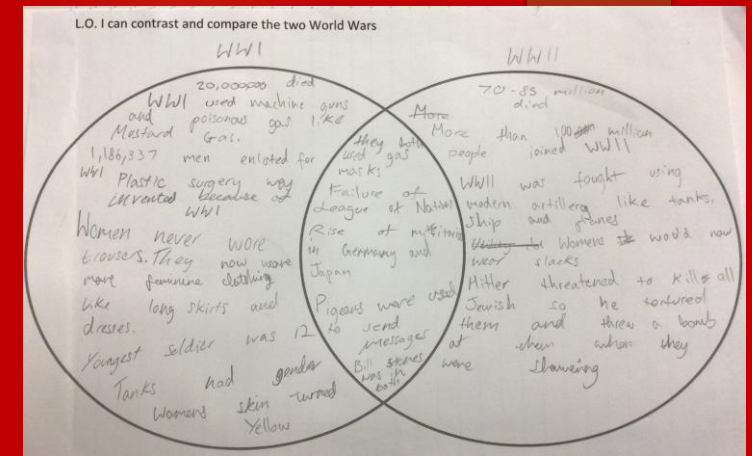 L.O. I can contrast and compare the two World Wars
WWI
20,000,000 died
WWI used machine guns
and poisonous gas like
Mustard Gas.
1,186,337 men enlisted for
WWI
Plastic surgery was
invented because of
WWI
Women never wore
trousers. They now wore
more feminine clothing
like long skirts and
dresses.
Youngest soldier was 12
Tanks had gender
Womens skin turned
Yellow
they both
used gas
masks
Failure of
League of Nations
Rise of
in Germany and
Japan
Pigeons were used
to send
messages
Bill
was in
both
WWII
70-85 million
died
More
More than 100 million
people joined WWII
WWII was fought using
modern artillery like tanks,
ship and planes
Womens would now
wear slacks
Hitler threatened to kill all
Jewish so he tortured
them and threw a bomb
at them when they
were showering